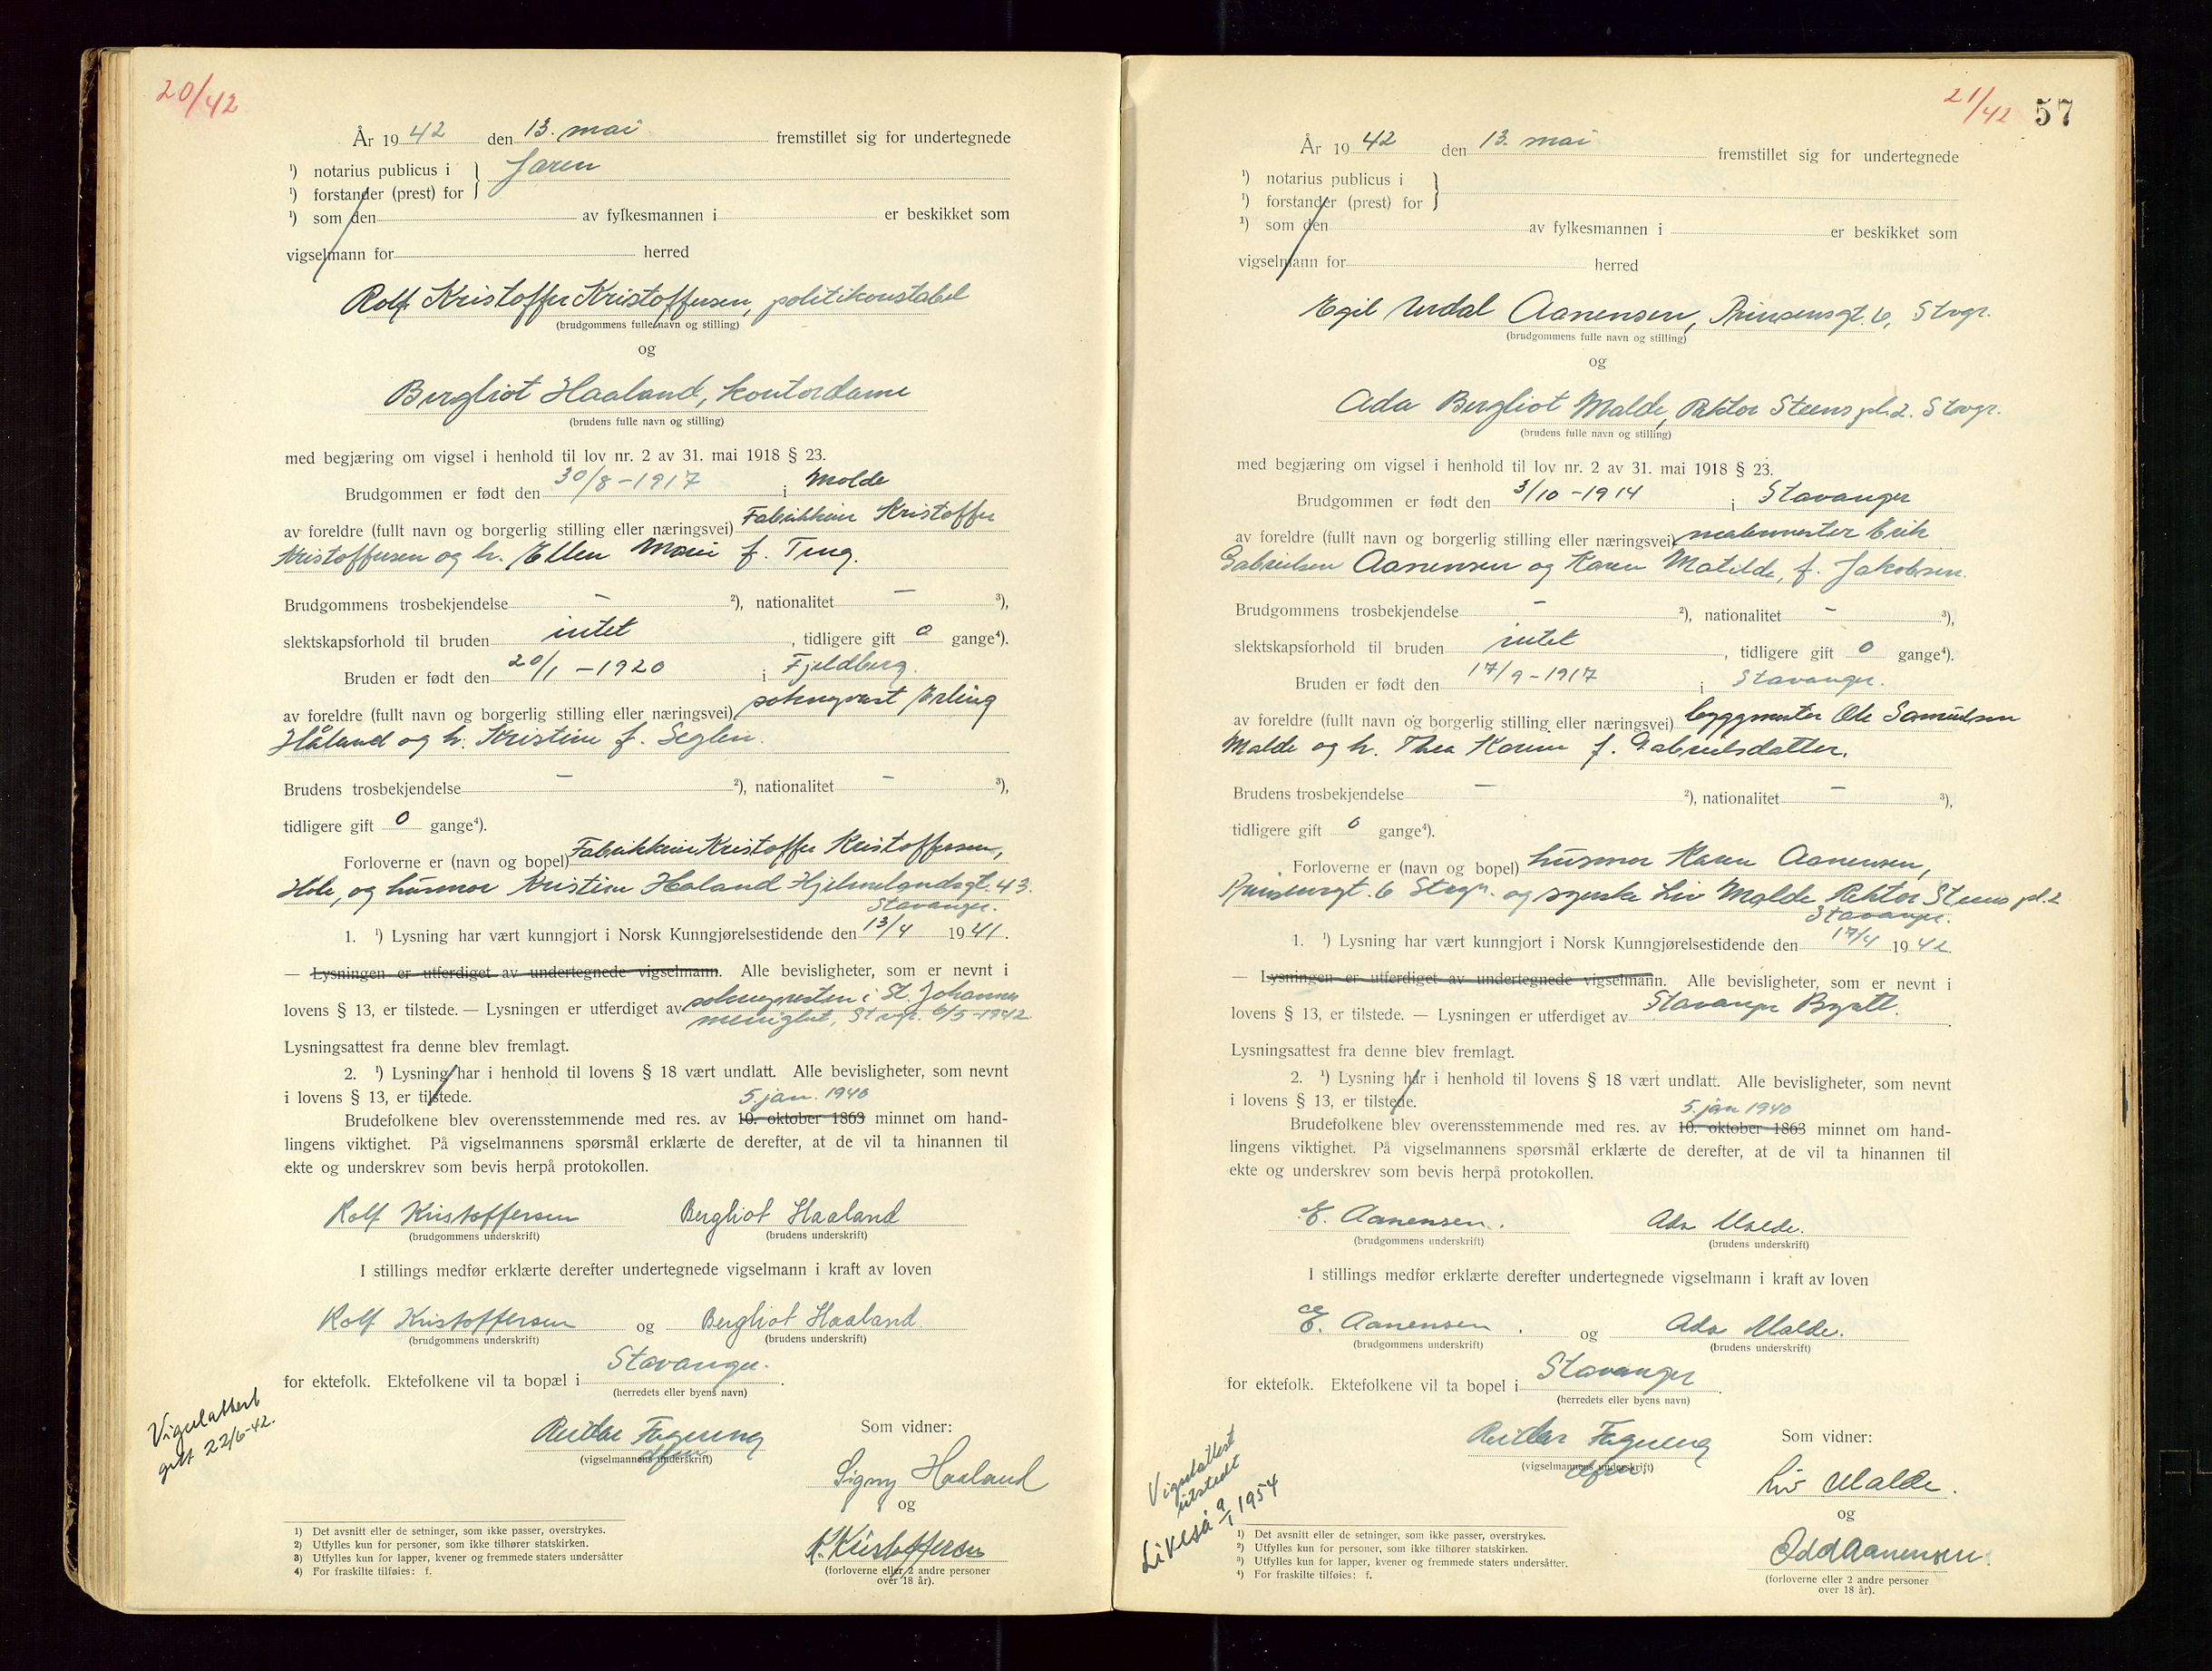 20/42
År 1942 den 13. mai fremstillet sig for undertegnede
¹) notarius publicus i } Jæren
¹) forstander (prest) for
¹) som den av fylkesmannen i er beskikket som
vigselmann for herred
Rolf Kristoffer Kristoffersen, politikonstabel
(brudgommens fulle navn og stilling)
og
Bergliot Haaland, kontordame
(brudens fulle navn og stilling)
med begjæring om vigsel i henhold til lov nr. 2 av 31. mai 1918 § 23.
Brudgommen er født den 30/8-1917 i Molde
av foreldre (fullt navn og borgerlig stilling eller næringsvei) Fabrikkeier Kristoffer
Kristoffersen og h. Ellen Marie f. Ting.
Brudgommens trosbekjendelse - ²), nationalitet - ³),
slektskapsforhold til bruden intet, tidligere gift 0 gange⁴).
Bruden er født den 20/1-1920 i Fjeldberg.
av foreldre (fullt navn og borgerlig stilling eller næringsvei) sokneprest Erling
Håland og h. Kristine f. Seglem.
Brudens trosbekjendelse - ²), nationalitet - ³),
tidligere gift 0 gange⁴).
Forloverne er (navn og bopel) Fabrikkeier Kristoffer Kristoffersen,
Hole, og husmor Kristine Haland Hjelmelandsgt. 43.
Stavanger.
1. ¹) Lysning har vært kunngjort i Norsk Kunngjørelsestidende den 13/4 1941.
— Lysningen er utferdiget av undertegnede vigselmann. Alle bevisligheter, som er nevnt i
lovens § 13, er tilstede. — Lysningen er utferdiget av soknepresten i St. Johannes
menighet, Stvgr. 6/5-1942
Lysningsattest fra denne blev fremlagt.
2. ¹) Lysning har i henhold til lovens § 18 vært undlatt. Alle bevisligheter, som nevnt
i lovens § 13, er tilstede.
5. jan. 1940
Brudefolkene blev overensstemmende med res. av 10. oktober 1863 minnet om hand-
lingens viktighet. På vigselmannens spørsmål erklærte de derefter, at de vil ta hinannen til
ekte og underskrev som bevis herpå protokollen.
Rolf Kristoffersen Bergliot Haaland
(brudgommens underskrift) (brudens underskrift)
I stillings medfør erklærte derefter undertegnede vigselmann i kraft av loven
Rolf Kristoffersen og Bergliot Haaland.
(brudgommens underskrift) (brudens underskrift)
for ektefolk. Ektefolkene vil ta bopæl i Stavanger.
(herredets eller byens navn)
Vigselattest
gitt 22/6-42.
Reidar Fagueng
(vigselmannens underskrift)
Som vidner:
Signy Haaland
og
K. Kristoffersen
(forloverne eller 2 andre personer
over 18 år).
1) Det avsnitt eller de setninger, som ikke passer, overstrykes.
2) Utfylles kun for personer, som ikke tilhører statskirken.
3) Utfylles kun for lapper, kvener og fremmede staters undersåtter
4) For fraskilte tilføies: f.
21/42 57
År 1942 den 13. mai fremstillet sig for undertegnede
¹) notarius publicus i }
¹) forstander (prest) for
¹) som den av fylkesmannen i er beskikket som
vigselmann for herred
Egil Urdal Aanensen, Prinsensgt. 6, Stvgr.
(brudgommens fulle navn og stilling)
og
Ada Bergliot Malde, Rektor Steens pl. 2. Stvgr.
(brudens fulle navn og stilling)
med begjæring om vigsel i henhold til lov nr. 2 av 31. mai 1918 § 23.
Brudgommen er født den 3/10-1914 i Stavanger
av foreldre (fullt navn og borgerlig stilling eller næringsvei) malermester Erik
Gabrielsen Aanensen og Karen Matilde, f. Jakobsen.
Brudgommens trosbekjendelse - ²), nationalitet - ³),
slektskapsforhold til bruden intet, tidligere gift 0 gange⁴).
Bruden er født den 17/9-1917 i Stavanger.
av foreldre (fullt navn og borgerlig stilling eller næringsvei) byggmester Ole Samuelsen
Malde og h. Thea Karine f. Gabrielsdatter.
Brudens trosbekjendelse - ²), nationalitet - ³),
tidligere gift 0 gange⁴).
Forloverne er (navn og bopel) husmor Karen Aanensen,
Prinsensgt. 6 Stvgr. og syerske Liv Malde Rektor Steens pl. 2
Stavanger.
1. ¹) Lysning har vært kunngjort i Norsk Kunngjørelsestidende den 17/4 1942.
— Lysningen er utferdiget av undertegnede vigselmann. Alle bevisligheter, som er nevnt i
lovens § 13, er tilstede. — Lysningen er utferdiget av Stavanger Byrett.
Lysningsattest fra denne blev fremlagt.
2. ¹) Lysning har i henhold til lovens § 18 vært undlatt. Alle bevisligheter, som nevnt
i lovens § 13, er tilstede.
5. jan 1940
Brudefolkene blev overensstemmende med res. av 10. oktober 1863 minnet om hand-
lingens viktighet. På vigselmannens spørsmål erklærte de derefter, at de vil ta hinannen til
ekte og underskrev som bevis herpå protokollen.
E. Aanensen. Ada Malde.
(brudgommens underskrift) (brudens underskrift)
I stillings medfør erklærte derefter undertegnede vigselmann i kraft av loven
E. Aanensen. og Ada Malde.
(brudgommens underskrift) (brudens underskrift)
for ektefolk. Ektefolkene vil ta bopel i Stavanger.
(herredets eller byens navn)
Vigselattest
utstedt
Likeså 9/1 1954
Reidar Fagueng
(vigselmannens underskrift)
Som vidner:
Liv Malde.
og
Odd Aanensen.
(forloverne eller 2 andre personer
over 18 år).
¹) Det avsnitt eller de setninger, som ikke passer, overstrykes.
²) Utfylles kun for personer, som ikke tilhører statskirken.
³) Utfylles kun for lapper, kvener og fremmede staters undersåtter.
⁴) For fraskilte tilføies: f.